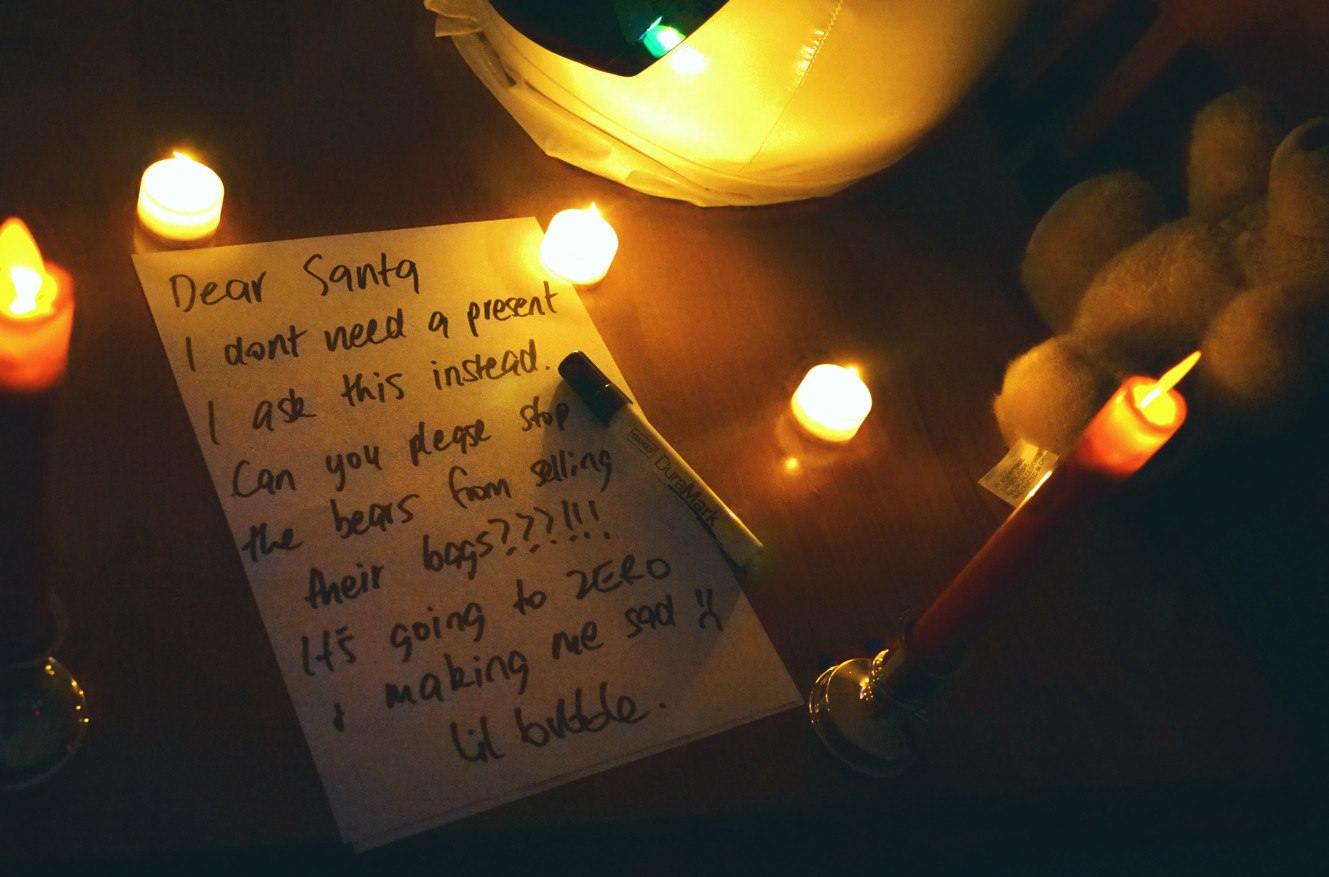 Dear Santa
I dont need a present
I ask this instead.
Can you please stop
the bears from selling
their bags???!!!
It's going to ZERO
& making me sad :(
lil bubble.
DuraMark